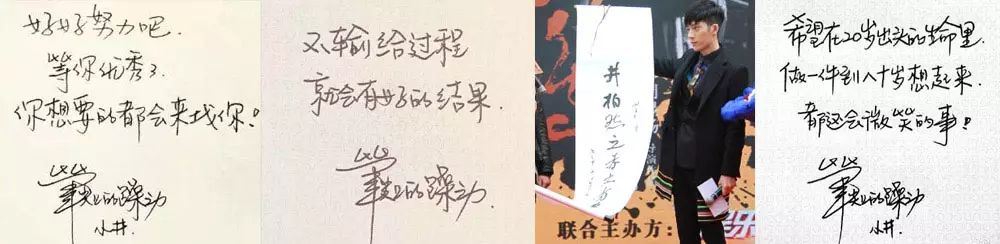 好好努力吧.
等你优秀了.
你想要的都会来找你!
笔尖上的躁动
小井.
不输给过程
就会有好的结果.
笔尖上的躁动
井柏然之手书
联合主办方:
希望在20岁出头的生命里.
做一件到八十岁想起来.
都还会微笑的事!
笔尖上的躁动
小井.